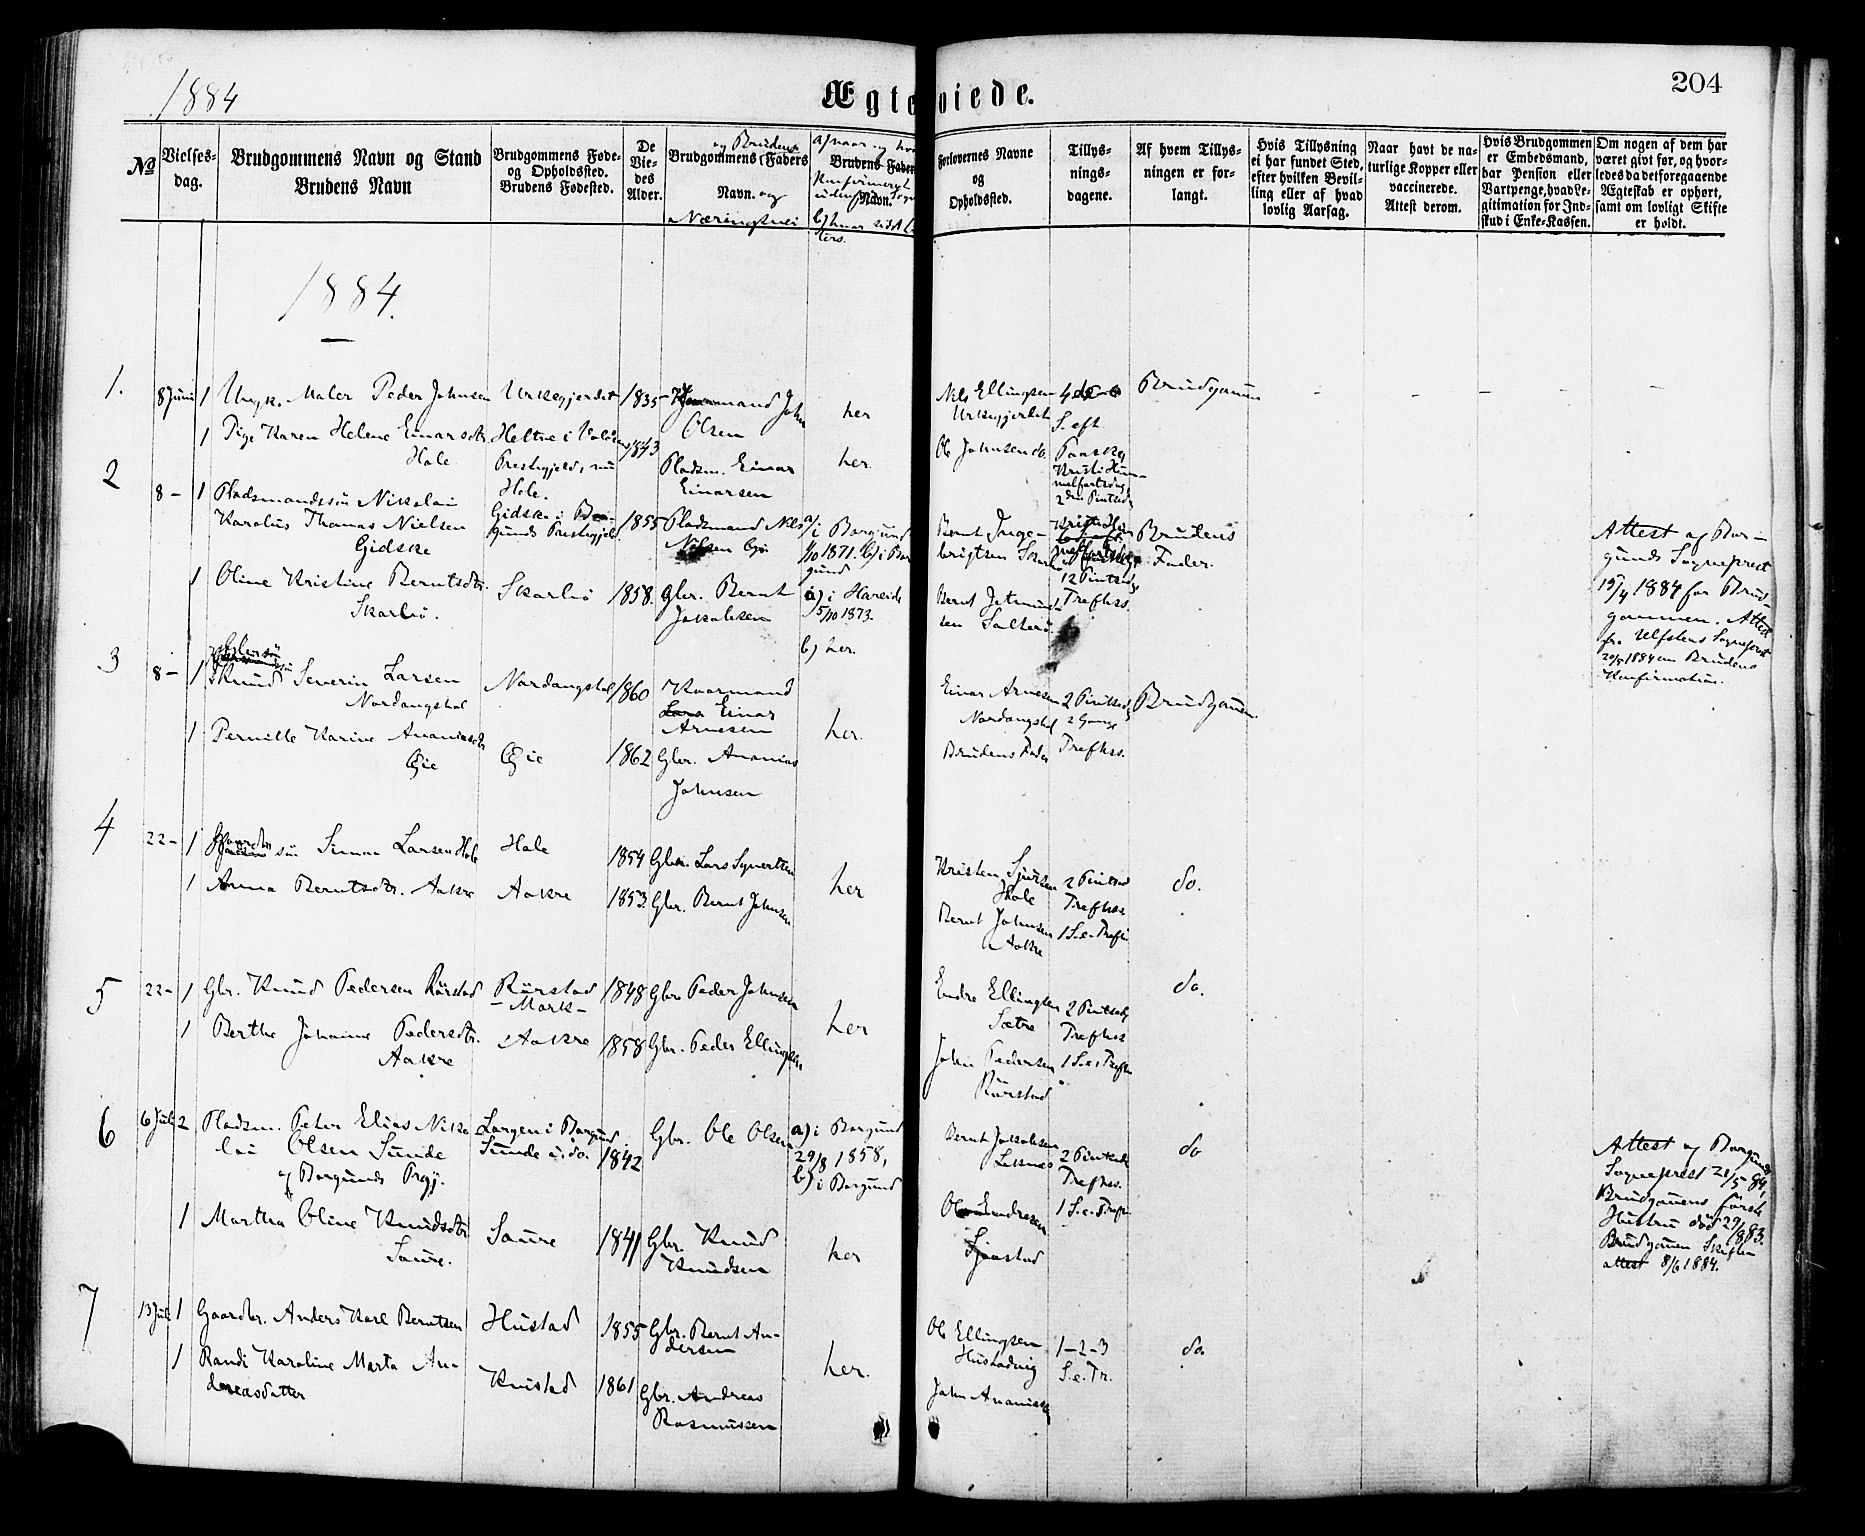 1884
Ægteviede.
204
No
Vielses-
dag.
Brudgommens Navn og Stand
Brudens Navn
Brudgommens Føde-
og Opholdssted.
Brudens Fødested.
De
Vie-
des
Alder.
og Brudens
Brudgommens Faders
Navn. og
Næringsvei
a) naar og
Brudens Faders
Konfirmeret
Navn.
b) hvor sidst
Forlovernes Navne
og
Opholdssted.
Tillys-
nings-
dagene.
Af hvem Tillys-
ningen er for-
langt.
Hvis Tillysning
ei har fundet Sted,
efter hvilken Bevil-
ling eller af hvad
lovlig Aarsag.
Naar havt de na-
turlige Kopper eller
vaccinerede.
Attest derom.
Hvis Brudgommen
er Embedsmand,
har Pension eller
Vartpenge, hvad Le-
gitimation for Ind-
skud i Enke-Kassen.
Om nogen af dem har
været givt før, og hvor-
ledes da det foregaaende
Ægteskab er ophørt,
samt om lovligt Skifte
er holdt.
1884.
1.
8 Juni 1 Ungk. Maler Peder Johnsen
Urkegjerdet 1835
mand John
Olsen
her
Nils Ellingsen
Urkegjerdet
S. eft
Brudgommen
1 Pige Karen Helene Einarsdtr.
Hole
Heltne i Volden
Prestegjeld, nu
Hole.
1843
Pladsm. Einar
Einarsen
her.
Ole Johnsen do.
Paaske
Kristi Him-
melfartsdag
2den Pintsedag
2
8 - 1 Pladsmandssøn Nikolai
Karolus Thomas Nielsen
Gidske
Gidske i Bor-
gunds Prestegjeld
1855
Pladsmand Nils
Nilsen
a/ i Borgund
1/10 1871. b) i Bor
gund
Bernt Inge-
brigtsen
12 Pintsedg
Brudens
Fader.
Attest af Bor-
gunds Sogneprest
1884 for Brud-
gommen. Attest
fr. Ulfstens Sogneprest
1884 om Brudens
Konfirmation.
1 Oline Kristine Berntsdtr.
Skarbø.
Skarbø
1858.
Gbr. Bernt
Jakobsen
a) i Hareide
5/10 1873.
b) her.
Bernt
sen
Trefhss.
3
8 - 1
Knud Severin Larsen
Nordangsdal
Nordangsdal
1860
Kaarmand
Lars Einar
Arnesen
her.
Einar Arnesen
Nordangsdal
2 Pintsedg
2 Gange
Brudgommen
1 Pernille Karine Ananiasdtr
Øie
Øie
1862
Gbr. Ananias
Johnsen
Brudens Fader
Trefhss.
4
22 - 1
søn Simon Larsen Hole
Hole
1854
Gbr. Lars Syvertsen
her
Kristen Sjursen
Hole
2 Pintsed
Trefhss
do.
1 Anna Berntsdtr. Aakre
Aakre
1853.
Gbr. Bernt Johnsen
Bernt Johnsen
Aakre
1 S. e. Trefh
5
22 - 1 Gbr. Knud Pedersen Rørstad
Rørstad
- Mork -
1848
Gbr Peder Johnsen
her
Endre Ellingsen
Sætre
2 Pintsedg
Trefhss
do.
1 Berthe Johanne Pedersdtr.
Aakre
Aakre
1858
Gbr. Peder Ellingsen
John Pedersen
Rørstad
1 S. e. Trefh
6
6 Juli 2 Pladsm. Peter Elias Niko
lai Olsen Sunde
af Borgunds Prgj.
i Borgund
Sunde i do.
1842
Gbr. Ole Olsen
a) i Borgund
29/8 1858,
b) i Borgund
Bernt Jakobsen
Leknes
2 Pintsedg
Trefhss.
do
Attest af Borgunds
Sogneprest 21/5 84,
Brudgommens første
Hustru død 29/ 83.
Brudgommen Skifte
attest 8/6 1884.
1 Martha Oline Knudsdtr
Saure.
Saure
1841
Gbr. Knud
Knudsen
her
Ole Endresen
Sjaastad
1 S. e. Trefh
7
13 Juli 1 Gaardbr. Anders Karl Berntsen
Hustad
1855
Gbr. Bernt An-
dersen
her.
Ole Ellingsen
Hustadvig
1-2-3
S. e. Tr.
do.
1 Randi Karoline Marta An-
dreasdatter
Knistad
1861
Gbr. Andreas
Rasmussen
John Ananiasen